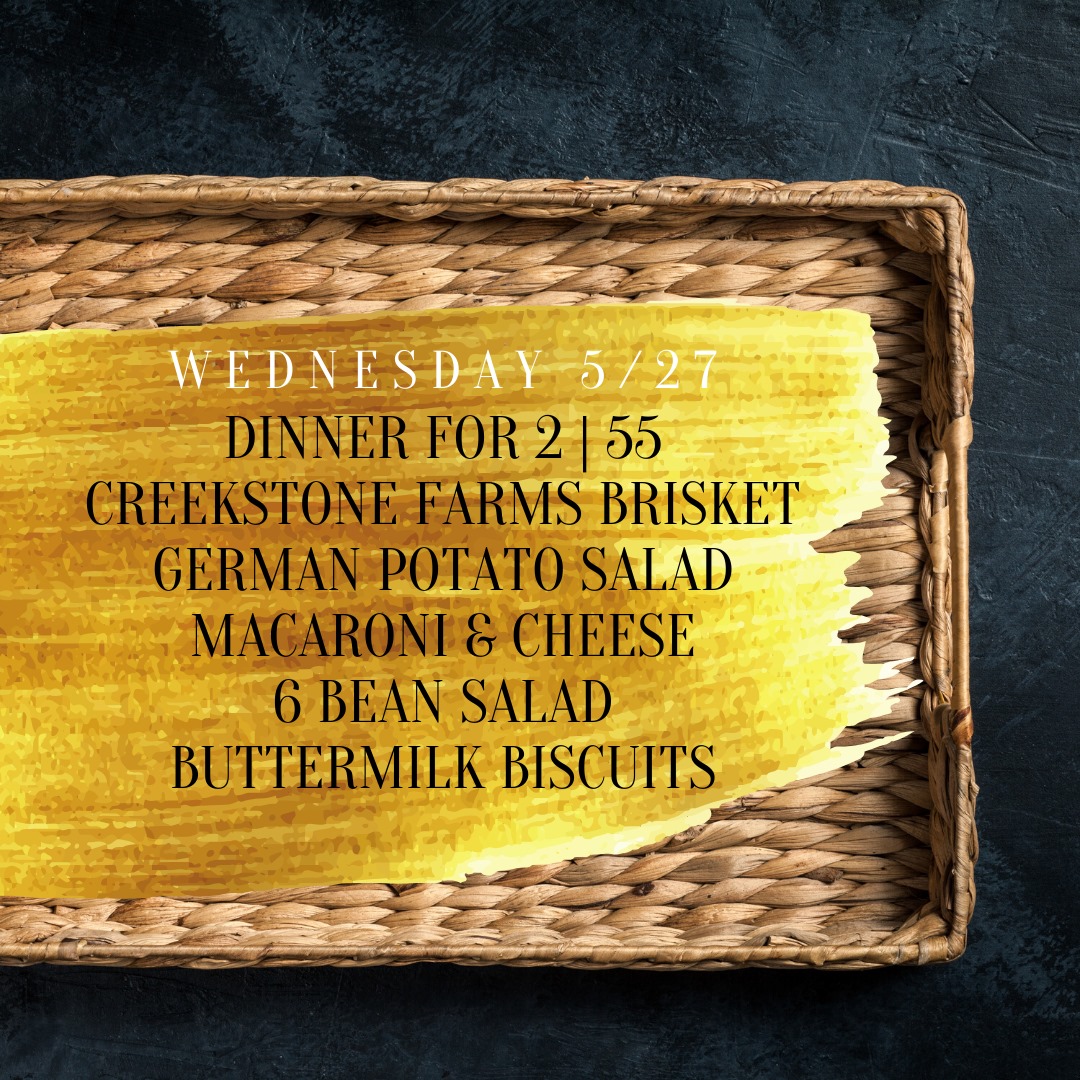 WEDNESDAY 5/27
DINNER FOR 2 | 55
CREEKSTONE FARMS BRISKET
GERMAN POTATO SALAD
MACARONI & CHEESE
6 BEAN SALAD
BUTTERMILK BISCUITS